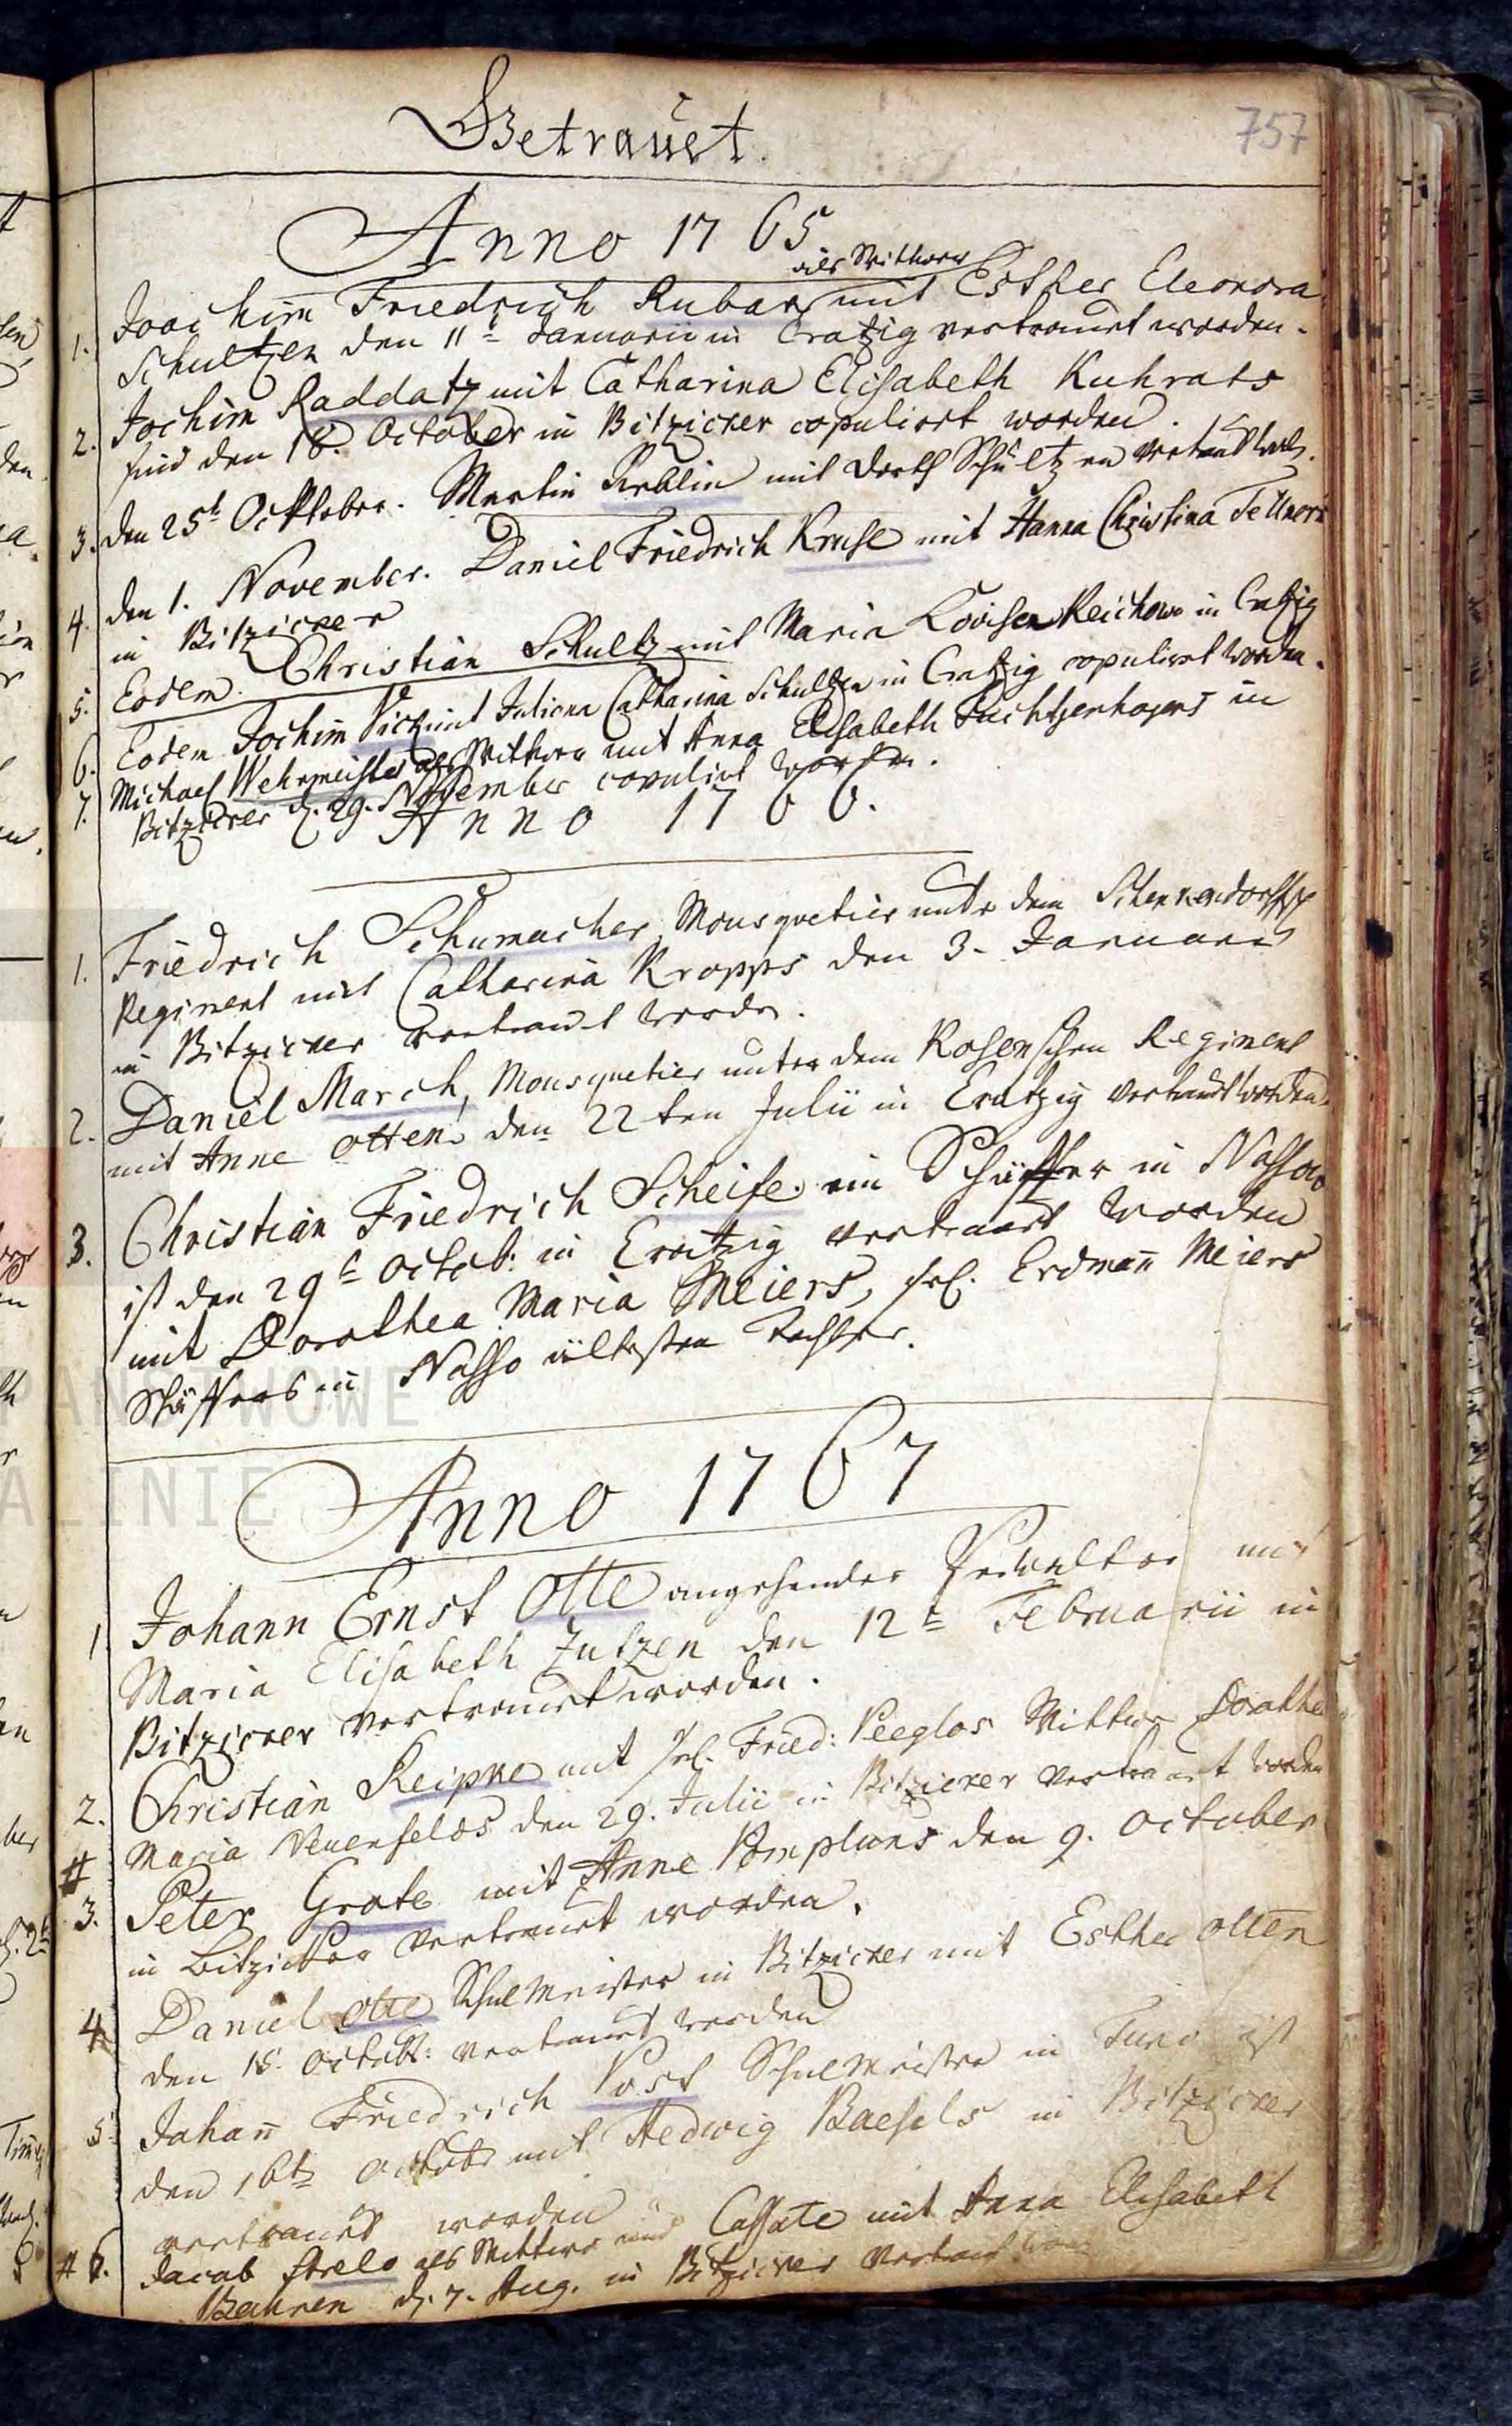 757
Getrauet.
Anno 1765
als Witwer
1. Joachim Friedrich Rubar mit Esther Eleonora
Schultzen den 11t Januarii in Cratzig vertrauet worden.
2. Jochim Raddatz mit Catharina Elisabeth Kuhrats
sind den 18. October in Bitzicker copuliert worden.
3. den 25t Octtober. Martin Reblin mit Dorth Schültzen vertraut
4. den 1. November. Daniel Friedrich Kruse mit Hanna Christina
in Bitzicker
5. Eodem. Christian Schultz mit Maria Lovisen Reichow in Cratzig
6. Eodem Jochim mit Juliana Catharina Schultzen in Cratzig copuliret worden.
7. Michael Wehrmeister als Witwer mit Anna Elisabeth in
Bitzicker d. 29. November copulirt worden.
Anno 1766.
1. Friedrich Schumacher, Mousquetier unter dem
Regiment mit Catharina Kropps den 3. Januarii
in Bitzicker vertraut worden.
2. Daniel March, Mousquetier unter dem Rosenschen Regiment
mit Anne Otten den 22ten Julii in Cratzig vertraut worden.
3. Christian Friedrich Scheife ein Schäffer in Nassow
ist den 29t Octob: in Cratzig vertrauet worden
mit Dorothea Maria Meiers, sel. Erdmañ Meiers
Schäffers in Nasso ältesten Tochter.
Anno 1767
1 Johann Ernst Otte angehender mit
Maria Elisabeth Zutzen den 12t Februarii in
Bitzicker vertrauet worden.
2. Christian Reipke mit sel. Fried: Peeglos Wittwe Dorothe
Maria Neuenfelds den 29. Julii in Bitzicker vertrauet worden
#
3. Peter Grote mit Anne Pompluns den 9. October
in Bitzicker vertrauet worden.
4 Daniel Otte Schulmeister in Bitzicker mit Esther Otten
den 15. Octobr: vertrauet worden
5 Johañ Friedrich Post Schulmeister in ist
den 16t Octobr mit Hedwig Baesels in Bitzicker
vertrauet worden
# 6. Jacob Strelo als Wittwer mit Anna Elisabeth
d. 7. Aug. in Bitzicker vertraut
PAŃSTWOWE
ALINIE